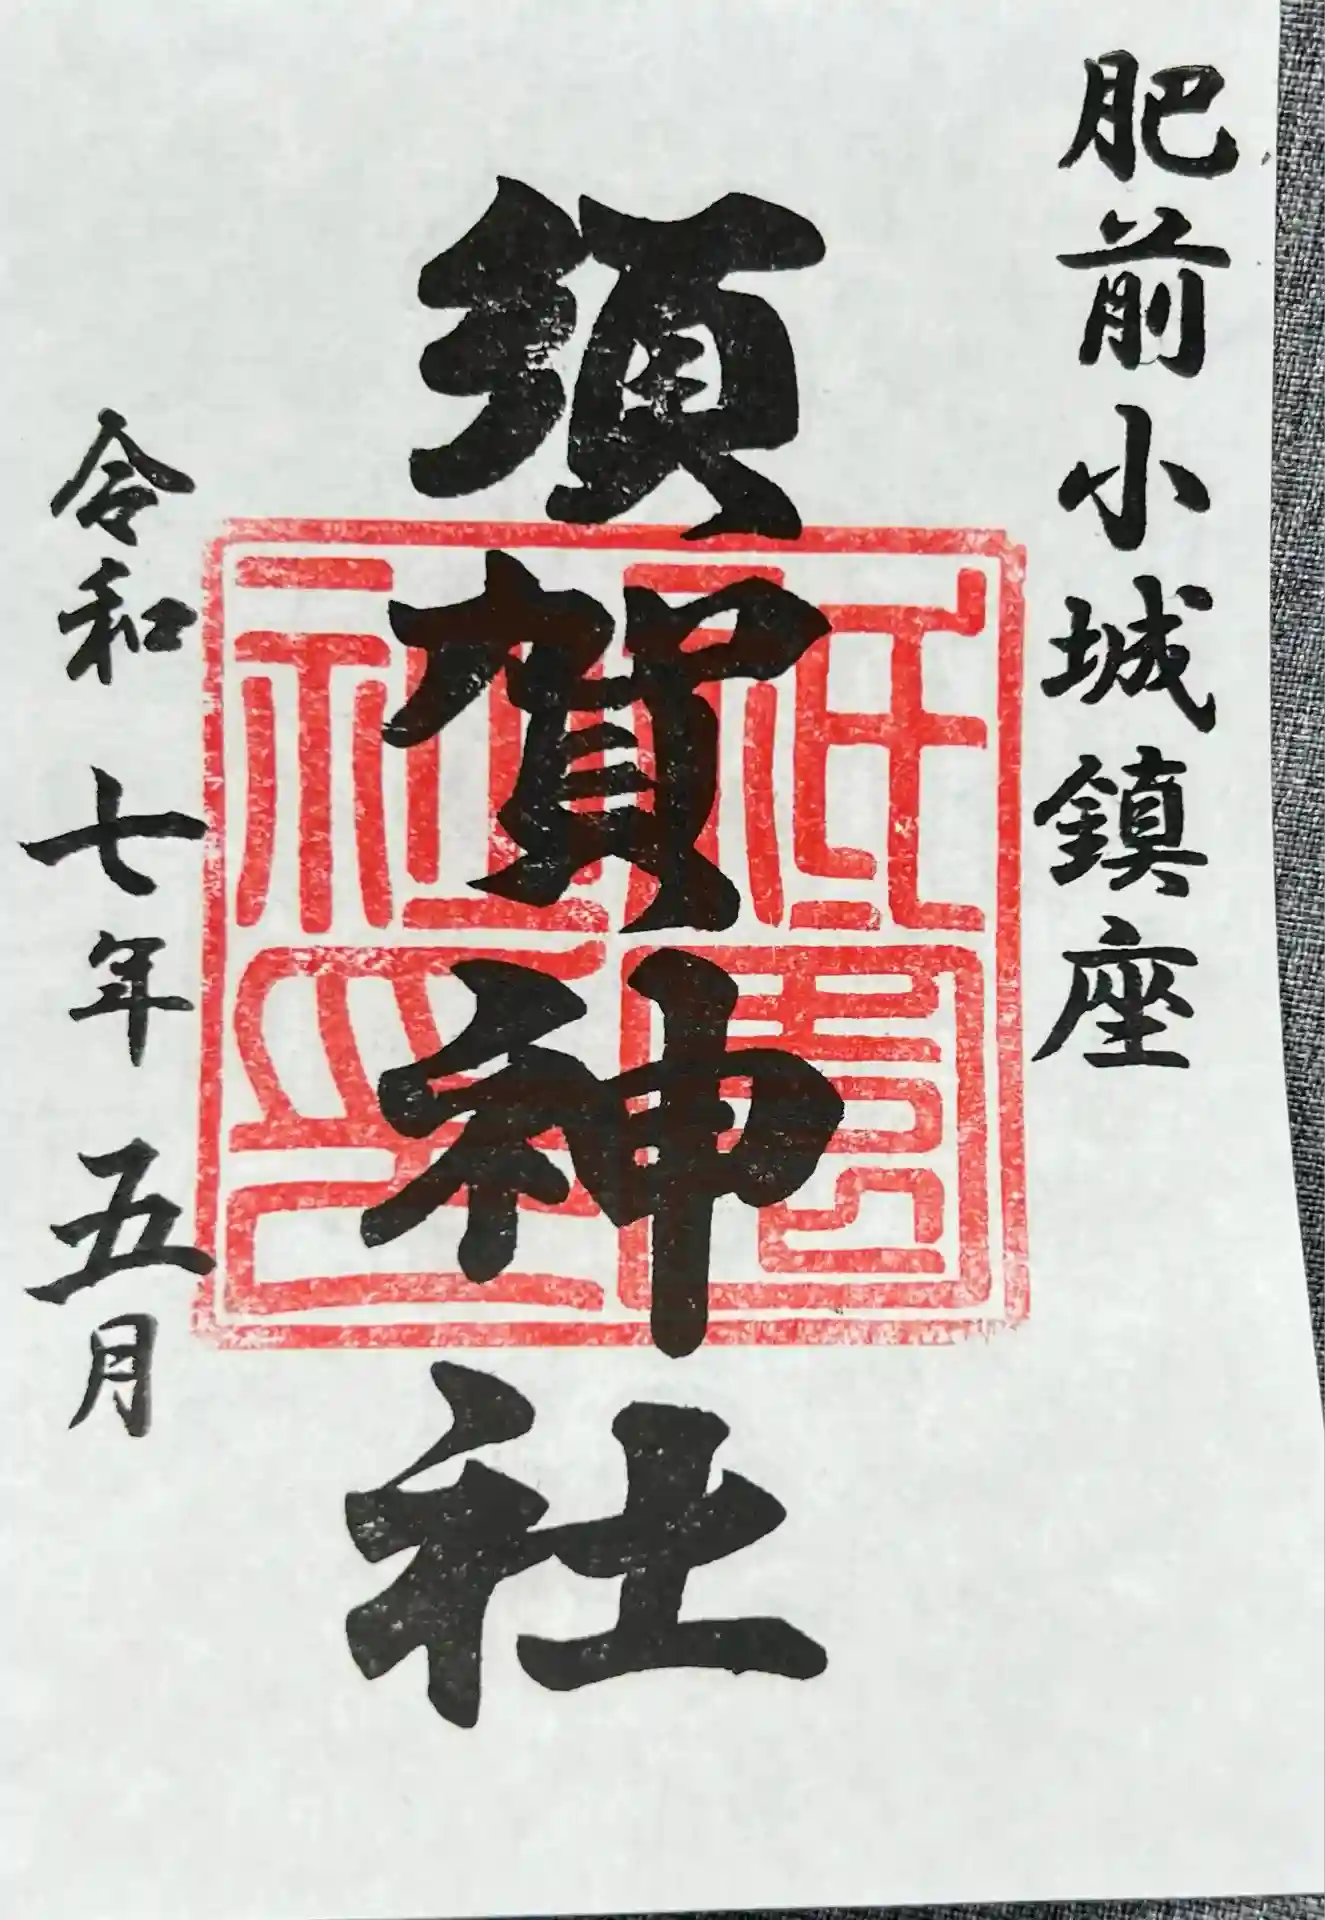 肥前小城鎮座
須賀神社
祇園社印
令和七年五月